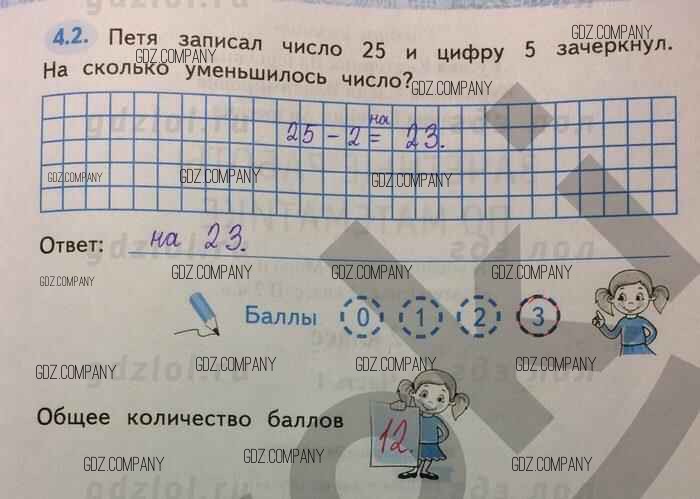 4.2. Петя записал число 25 и цифру 5 зачеркнул.
GDZ.COMPANY GDZ.COMPANY
На сколько уменьшилось число?
GDZ.COMPANY
25 - 2 = на 23.
GDZ.COMPANY GDZ.COMPANY GDZ.COMPANY
Ответ: на 23.
GDZ.COMPANY GDZ.COMPANY GDZ.COMPANY GDZ.COMPANY
Баллы 0 1 2 3
GDZ.COMPANY GDZ.COMPANY GDZ.COMPANY GDZ.COMPANY
Общее количество баллов 12.
GDZ.COMPANY GDZ.COMPANY GDZ.COMPANY GDZ.COMPANY